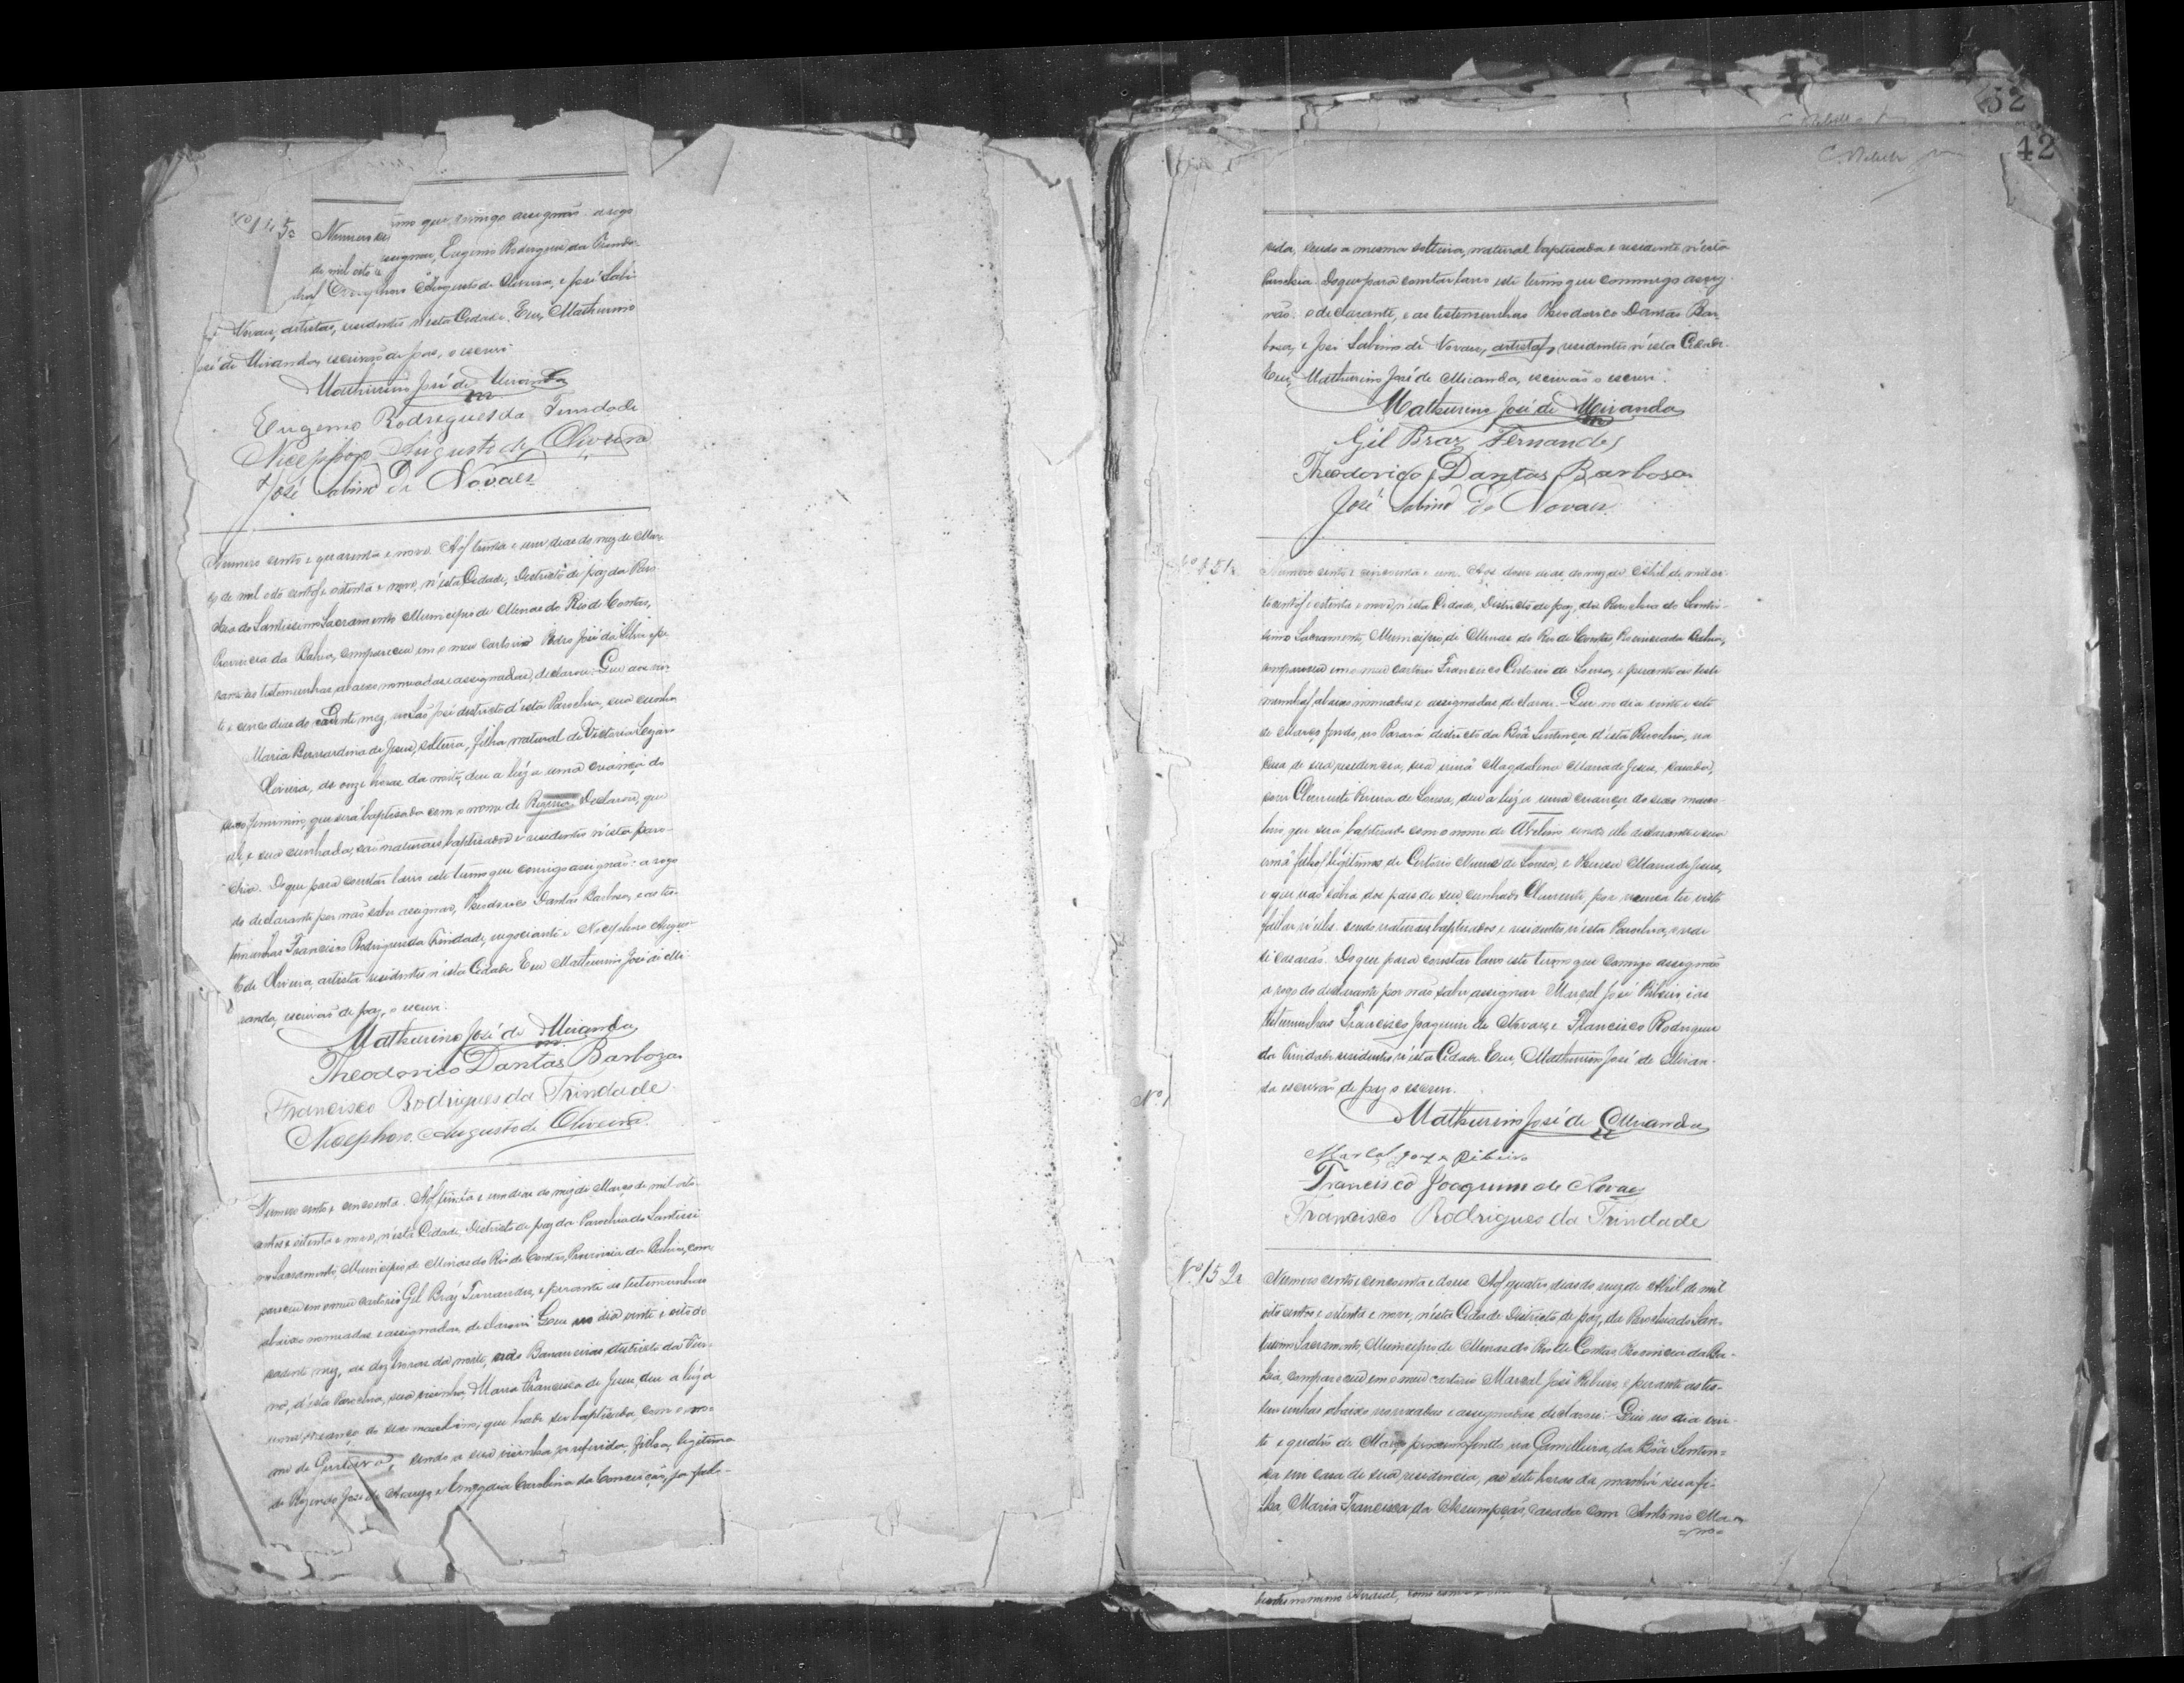 Nº 145
Numero mo que comigo assignão: a rogo
de mil oito assignar, Eugenio Rodrigues da Trinda-
Augusto de Oliveira, e José Sabi-
Novaes, artistas, residentes n'esta Cidade. Eu, Mathurino
José de Miranda, escrivão de paz, o escrevi.
Mathurino José de Miranda
Eugenio Rodrigues da Trindade
Nicephoro Augusto de Oliveira
José Sabino de Novaes
Numero cento e quarenta e nove. Aos trinta e um dias do mez de Mar-
ço de mil oito centos e oitenta e nove, n'esta Cidade, Destricto de paz da Paro-
chia do Santissimo Sacramento Municipio de Minas do Rio de Contas,
Provincia da Bahia, compareceu em o meu cartorio Pedro José da Silva e pe-
rante as testemunhas abaixo nomeadas e assignadas, declarou: Que aos vin-
te e cinco dias do corrente mez, em São José destricto d'esta Parochia, sua cunhada
Maria Bernardina de Jesus, solteira, filha natural de Victoria
Oliveira, as onze horas da noite, deu a lúz a uma criança do
sexo feminino, que será baptisada com o nome de Regina. Declarou, que
elle, e sua cunhada, são naturaes, baptisados e residentes n'esta paro-
chia. Do que para constar lavro este termo que comigo assignão: a rogo
do declarante por não saber assignar, Theodorico Dantas Barbosa, e as tes-
temunhas Francisco Rodrigues da Trindade, negociante e Nicephoro Augus-
to de Oliveira, artista residentes n'esta Cidade. Eu Mathurino José de Mi-
randa, escrivão de paz, o escrevi.
Mathurino José de Miranda
Theodorico Dantas Barboza
Francisco Rodrigues da Trindade
Nicephoro Augusto de Oliveira
Numero cento e cincoenta. Aos trinta e um dias do mez de Março de mil oito-
centos e oitenta e nove, n'esta Cidade, Destricto de paz da Parochia do Santissi-
mo Sacramento, Municipio de Minas do Rio de Contas, Provincia da Bahia, com-
pareceu em o meu cartorio Gil Braz Fernandes, e perante as testemunhas
abaixo nomeadas e assignadas, declarou: Que no dia vinte e oito do
corrente mez, as dez horas da noite, Bananeiras, districto da
d'esta Parochia, sua visinha Maria Francisca de Jesus, deu a lúz a
uma criança do sexo masculino, que hade ser baptisada com o no-
me de Gustavo, sendo a sua visinha ja referida, filha legitima
de Rozendo José de Araujo, e Carolina da Conceição, ja falle-
52
42
cida, sendo a mesma solteira, natural baptisada e residente n'esta
Parochia. Do que para constar lavro este termo que commigo assig-
não: o declarante, e as testemunhas Theodorico Dantas Bar-
bosa, e José Sabino de Novaes, artistas, residentes n'esta Cidade.
Eu, Mathurino José de Miranda, escrivão o escrevi.
Mathurino José de Miranda
Gil Braz Fernandes
Theodorico Dantas Barbosa
José Sabino de Novaes
Nº 151.
Numero cento e cincoenta e um. Aos dous dias do mez de Abril de mil oi-
to centos e oitenta e nove, n'esta Cidade, Districto de paz, da Parochia do Santis-
simo Sacramento, Municipio, de Minas do Rio de Contas, Provincia da Bahia,
compareceu em o meu cartorio Francisco de Souza, e perante as teste-
munhas abaixo nomeadas e assignadas, declarou: Que no dia vinte e sete
de Março findo, no Paraná districto da Bôa Sentença d'esta Parochia, na
casa de sua residencia, sua irmã Magdalena Maria de Jesus, casada,
com Clemente de Souza, deu a lúz a uma criança do sexo mascu-
lino, que sera baptisada com o nome de Abelino, sendo elle declarante e sua
irmã filhos legitimos de Nunes de Souza, e Maria de Jesus,
e que não sabia dos paes de seu cunhado Clemente, por nunca ter visto
fallar n'elles. sendo naturaes, baptisados e residentes n'esta Parochia, onde
se casarão. Do que para constar lavro este termo que comigo assignão
a rogo do declarante por não saber assignar Marçal José Ribeiro, e as
testemunhas Francisco Joaquim de Novaes, e Francisco Rodrigues
da Trindade residentes n'esta Cidade. Eu, Mathurino José de Miran-
da escrivão de paz, o escrevi.
Nº 1
Mathurino José de Miranda
Marcal Ribeiro
Francisco Joaquim de Novaes
Francisco Rodrigues da Trindade
Nº 152
Numero cento e cincoenta e dous. Aos quatro dias do mez de Abril de mil
oito centos e oitenta e nove, n'esta Cidade Destricto, de paz, da Parochia do San-
tissimo Sacramento, Municipio de Minas do Rio de Contas, Provincia da Ba-
hia, compareceu em o meu cartorio Marçal José Ribeiro, e perante as tes-
temunhas abaixo nomeadas e assignadas declarou: Que no dia vin-
te e quatro de Março findo, na Gamelleira, da Bôa Senten-
ça em casa de sua residencia, as sete horas da manhã sua fi-
lha, Maria Francisca da Assumpção, casada com Antonio Ma-